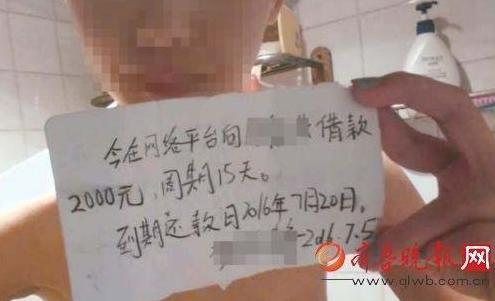 今在网络平台向 借款
2000元,周期15天。
到期还款日2016年7月20日,
-2016.7.5
齐鲁晚报网
www.qlwb.com.cn